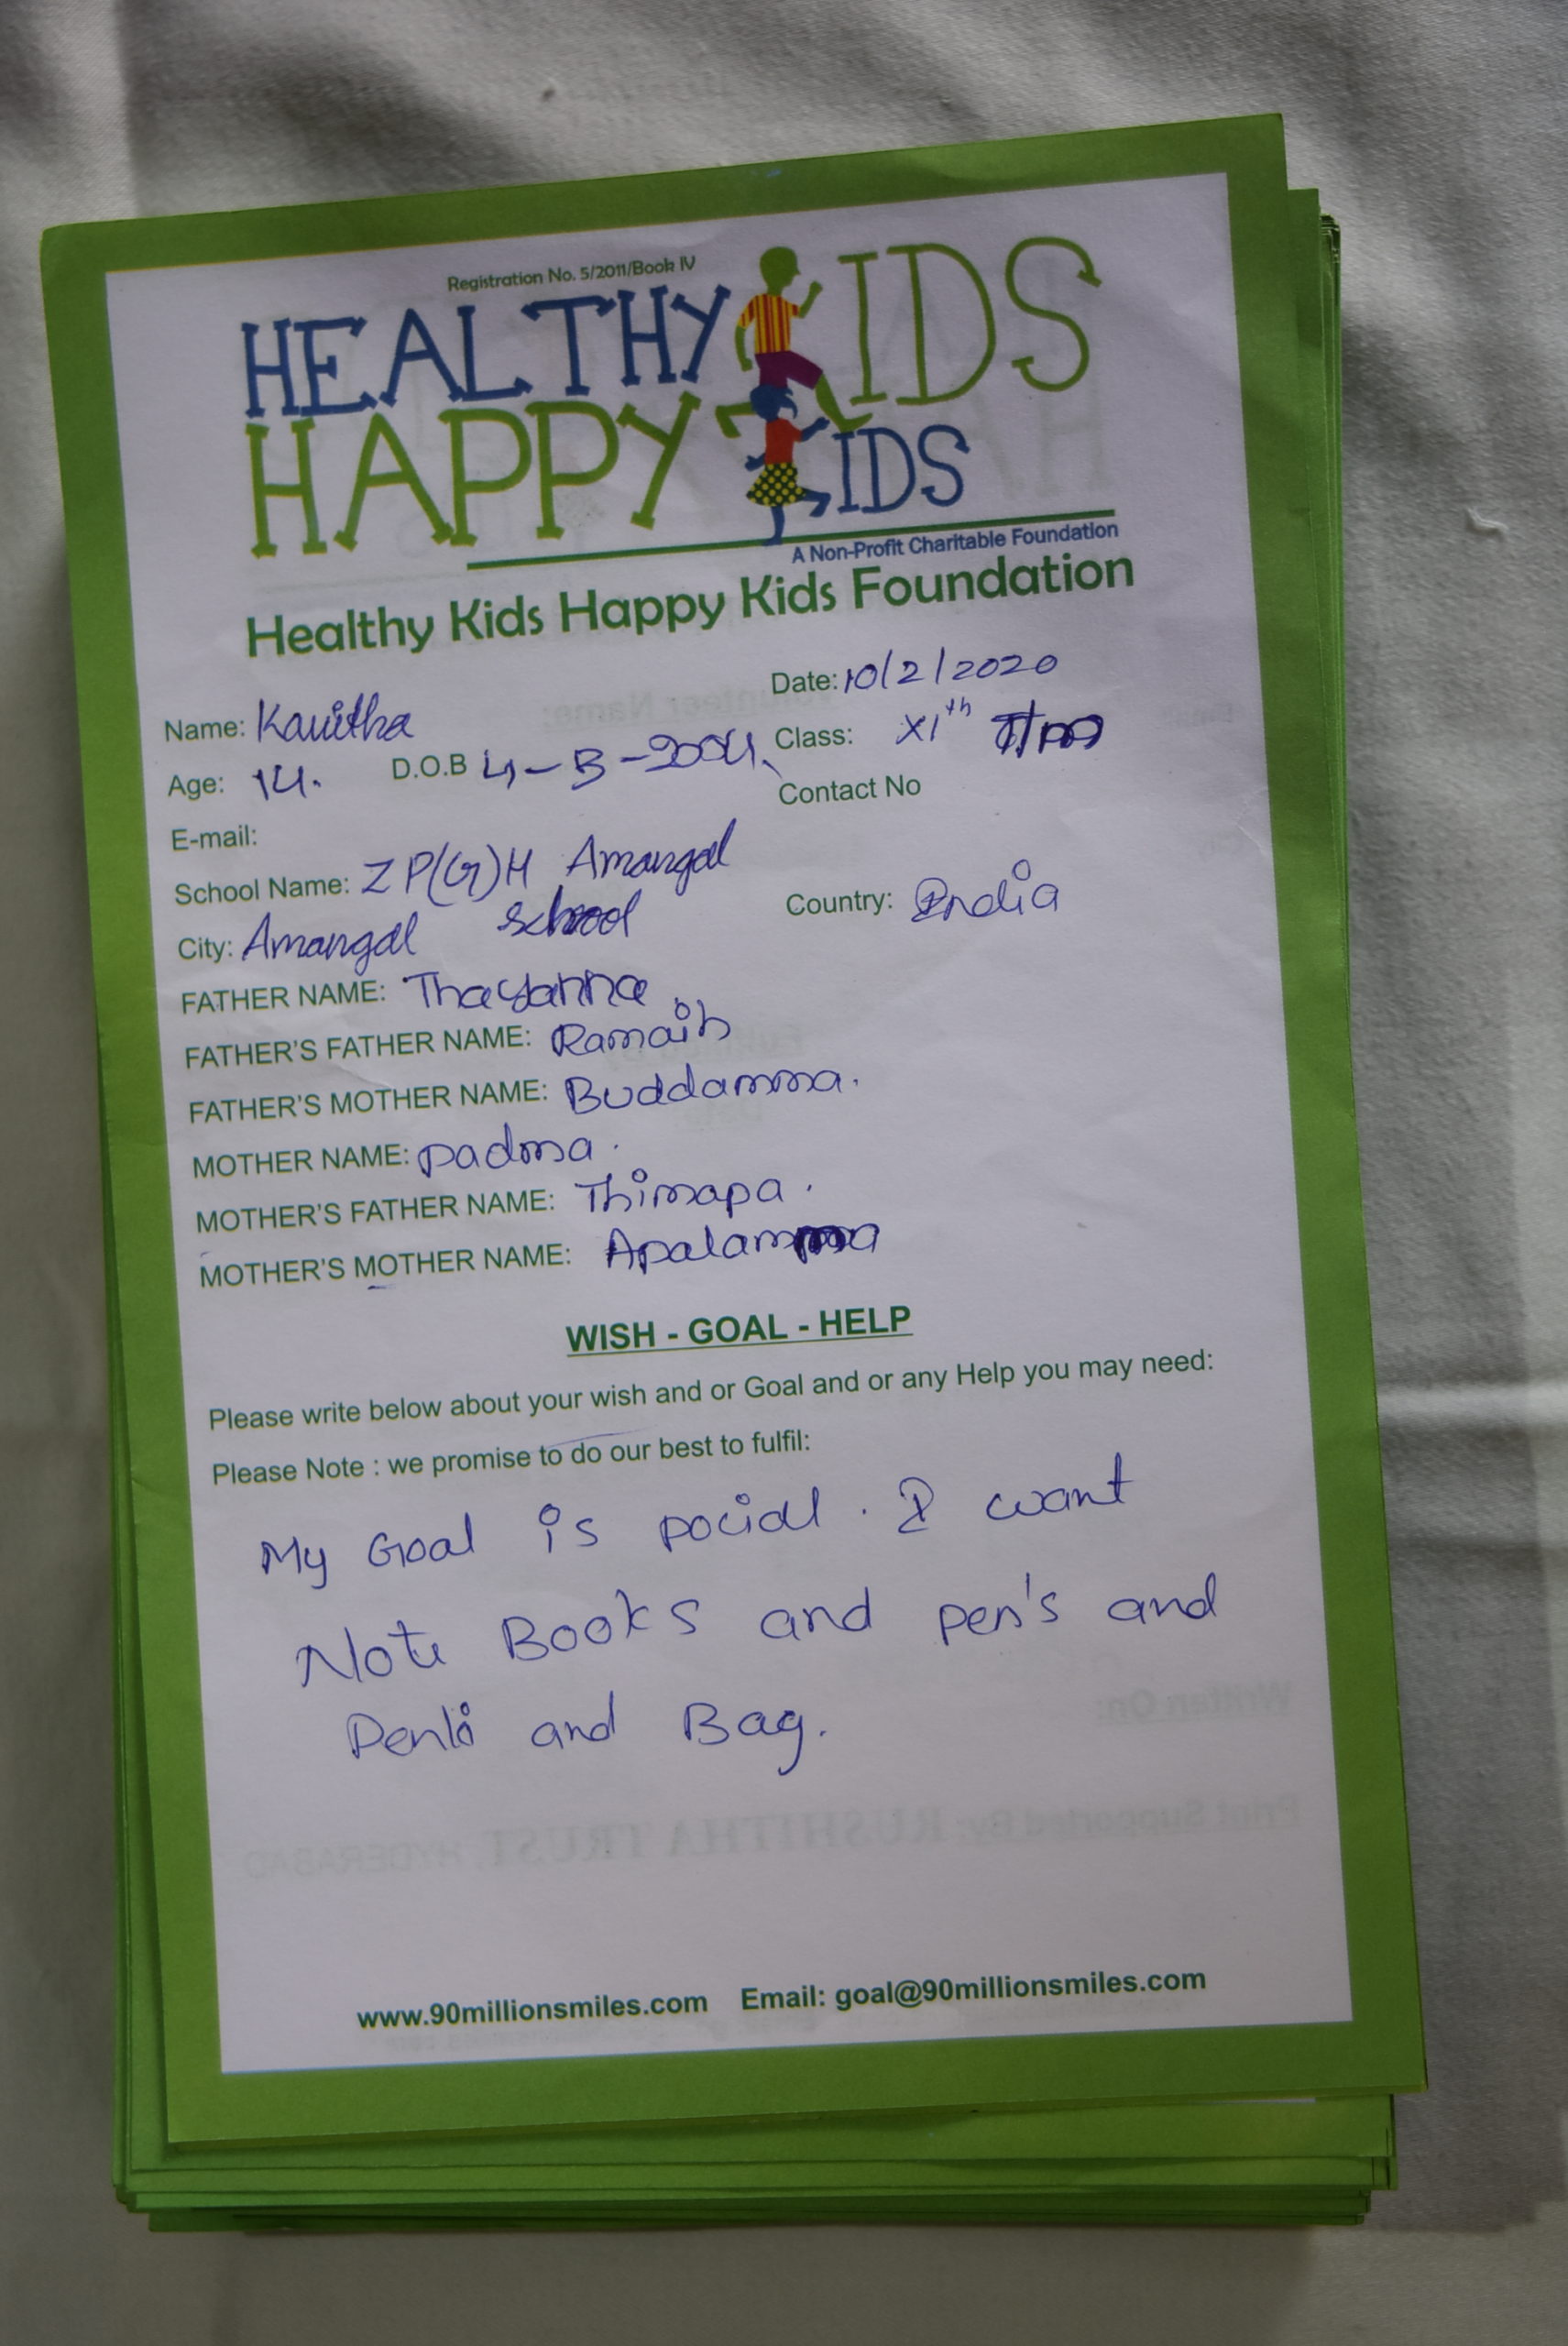 Registration No. 5/2011/Book IV
HEALTHY KIDS
HAPPY KIDS
A Non-Profit Charitable Foundation
Healthy Kids Happy Kids Foundation
Date: 10/2/2020
Name: Kavitha
Class: XIth
Age: 14. D.O.B 4-3-2004.
Contact No
E-mail:
School Name: ZP(G)H Amangal
school
City: Amangal Country: India
FATHER NAME: Thayanna
FATHER'S FATHER NAME: Ramaih
FATHER'S MOTHER NAME: Buddamma.
MOTHER NAME: padma.
MOTHER'S FATHER NAME: Thimapa.
MOTHER'S MOTHER NAME: Apalamma
WISH - GOAL - HELP
Please write below about your wish and or Goal and or any Help you may need:
Please Note : we promise to do our best to fulfil:
My Goal is pocial. I want
Note Books and pen's and
and Bag.
www.90millionsmiles.com Email: goal@90millionsmiles.com